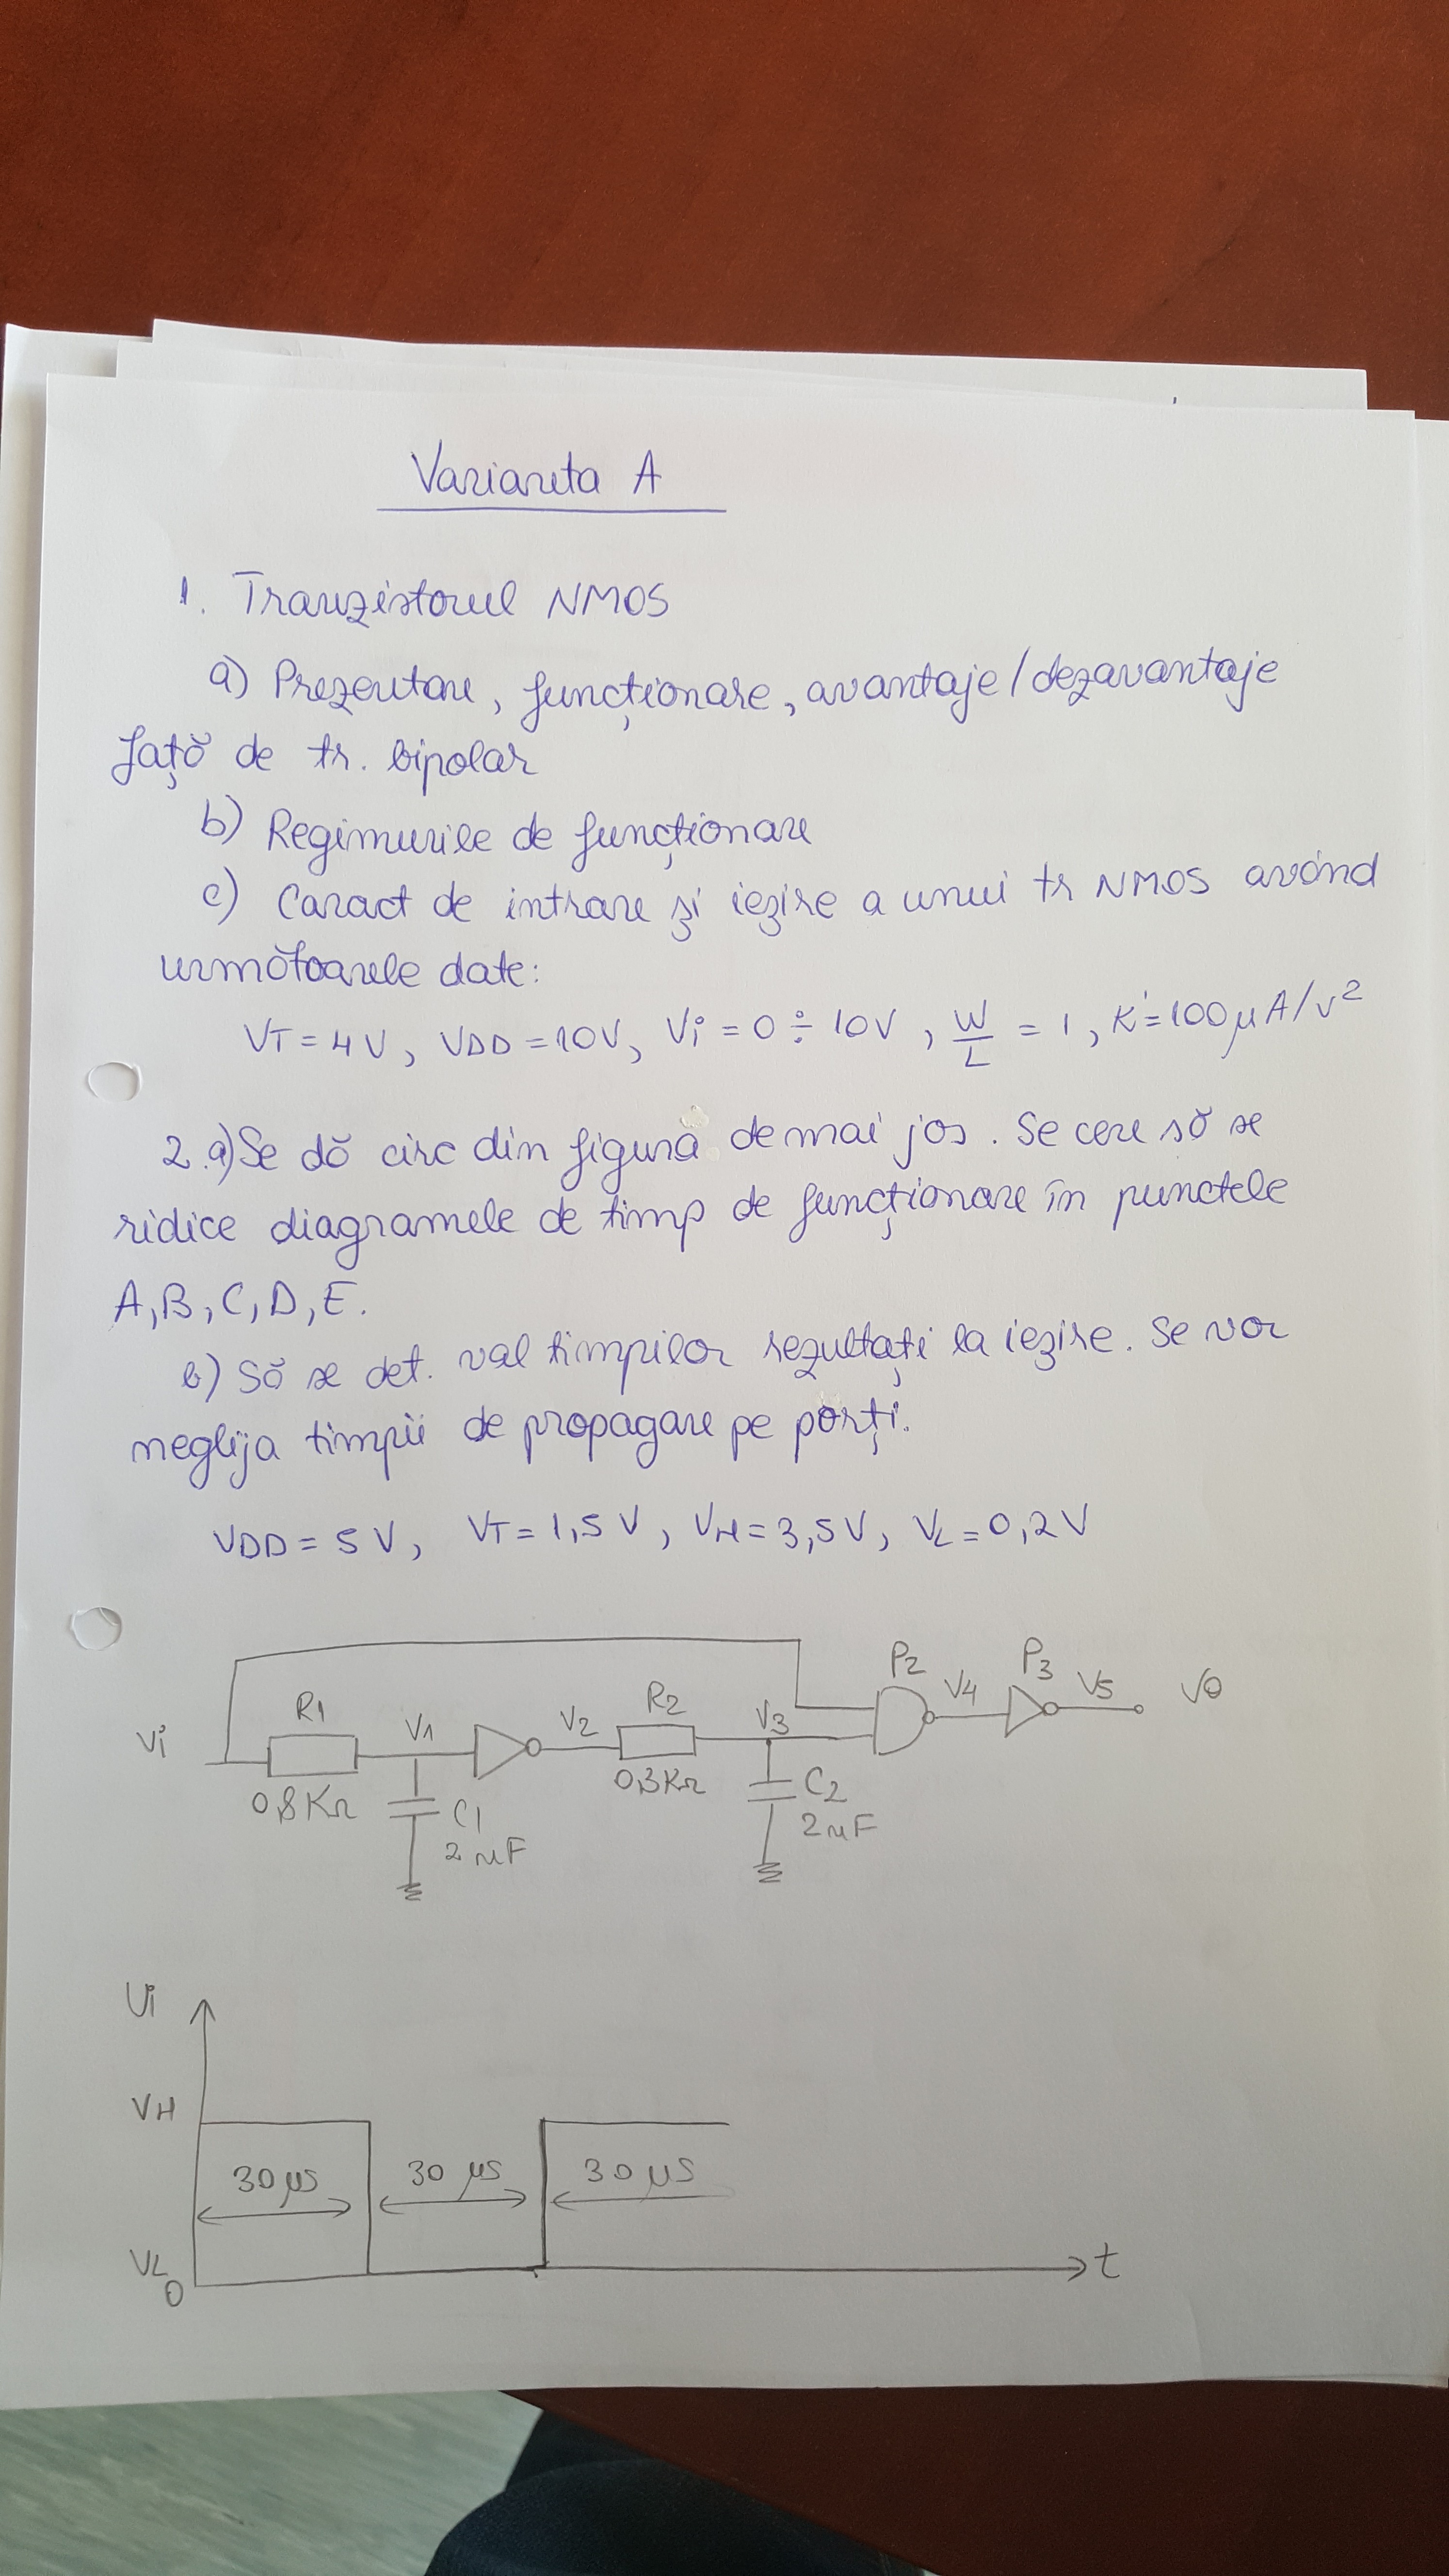 Varianta A
1. Tranzistorul NMOS
a) Prezentare, funcționare, avantaje/dezavantaje
față de tr. bipolar
b) Regimurile de funcționare
c) Caract de intrare și ieșire a unui tr NMOS având
următoarele date:
VT = 4V, VDD = 10V, Vi = 0 ÷ 10V, W/L = 1, K' = 100 μA/v²
2.a) Se dă circ din figura de mai jos. Se cere să se
ridice diagramele de timp de funcționare în punctele
A, B, C, D, E.
b) Să se det. val timpilor rezultați la ieșire. Se vor
neglija timpii de propagare pe porți.
VDD = 5V, VT = 1,5V, VH = 3,5V, VL = 0,2V
P2 P3
R1 R2 V4 V5 Vo
Vi V1 V2 V3
0,8KΩ 0,3KΩ
C1 C2
2nF 2nF
Ui
VH
30 μs 30 μs 30 μs
VL
0 t